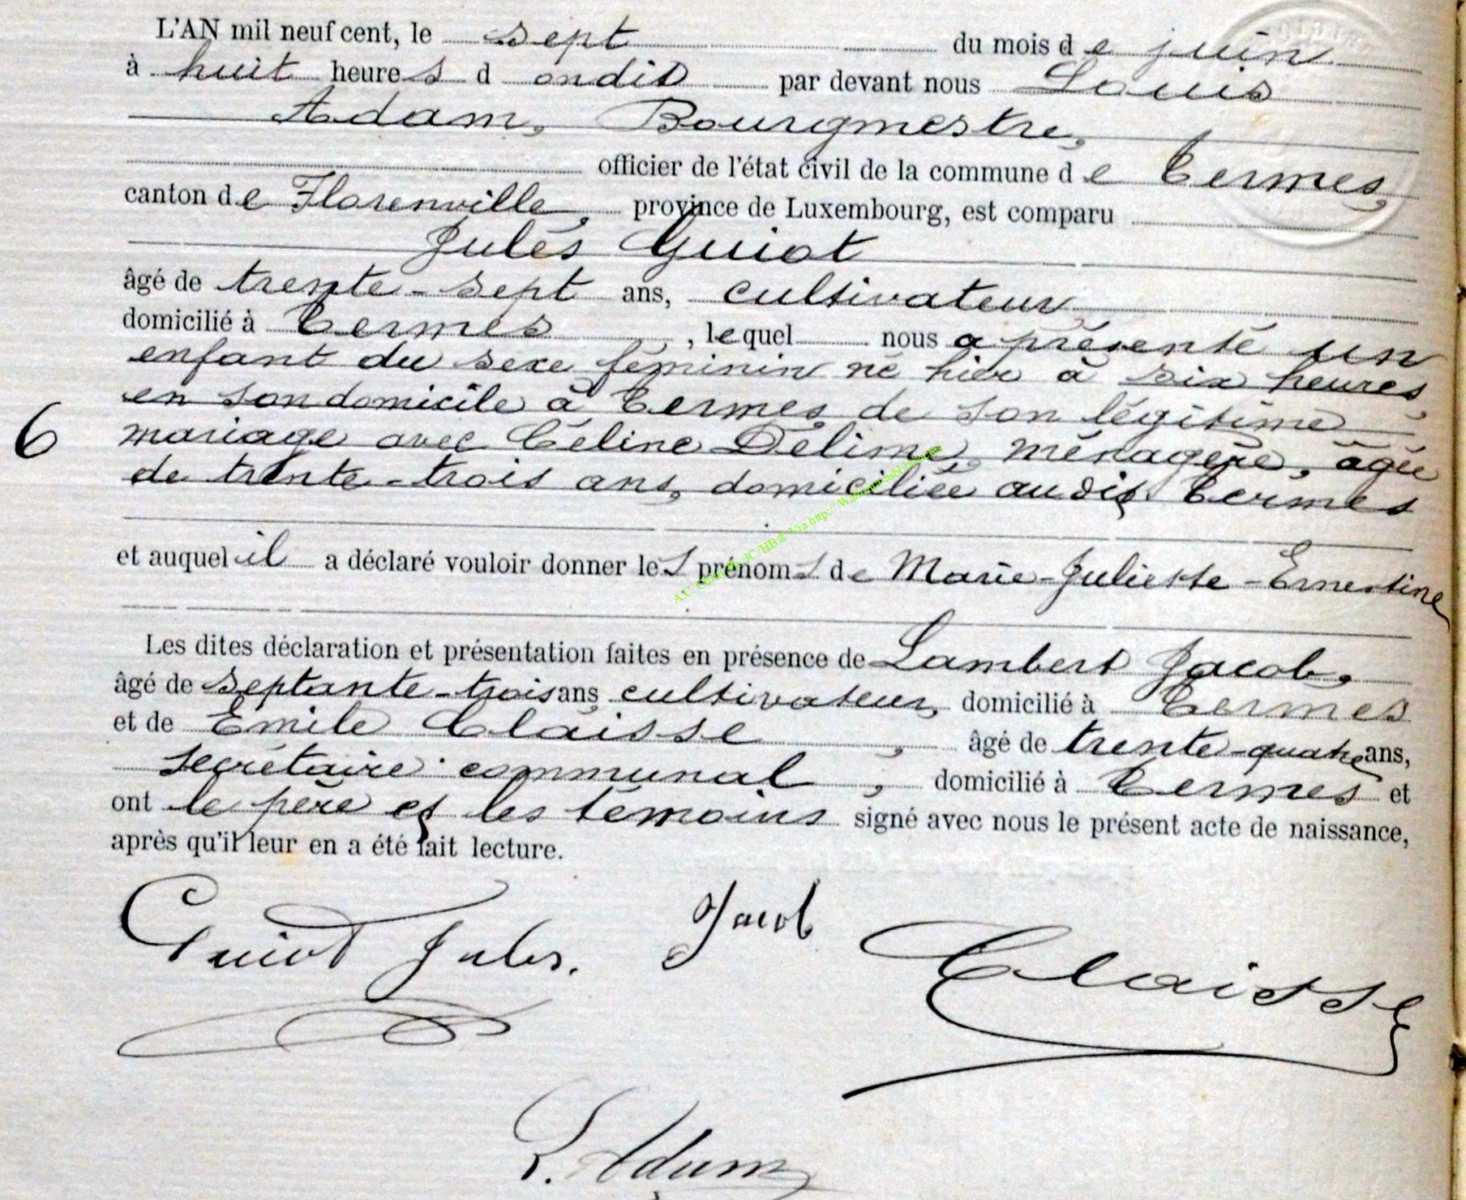 L'AN mil neuf cent, le sept du mois de juin
à huit heures d undit par devant nous Louis
Adam, Bourgmestre,
officier de l'état civil de la commune de Termes,
canton de Florenville, province de Luxembourg, est comparu
Jules Guiot
âgé de trente-sept ans, cultivateur
domicilié à Termes, lequel nous a présenté un
enfant du sexe féminin né hier à six heures,
en son domicile à Termes de son légitime
mariage avec Céline Délime, ménagère, âgée
de trente-trois ans, domiciliée audit Termes
6
et auquel il a déclaré vouloir donner les prénoms de Marie-Juliette-Ernestine
Les dites déclaration et présentation faites en présence de Lambert Jacob,
âgé de septante-trois ans cultivateur, domicilié à Termes
et de Emile Claisse, âgé de trente-quatre ans,
secrétaire communal, domicilié à Termes et
ont le père et les témoins signé avec nous le présent acte de naissance,
après qu'il leur en a été fait lecture.
Guiot Jules.
Jacob
Claisse
L. Adam